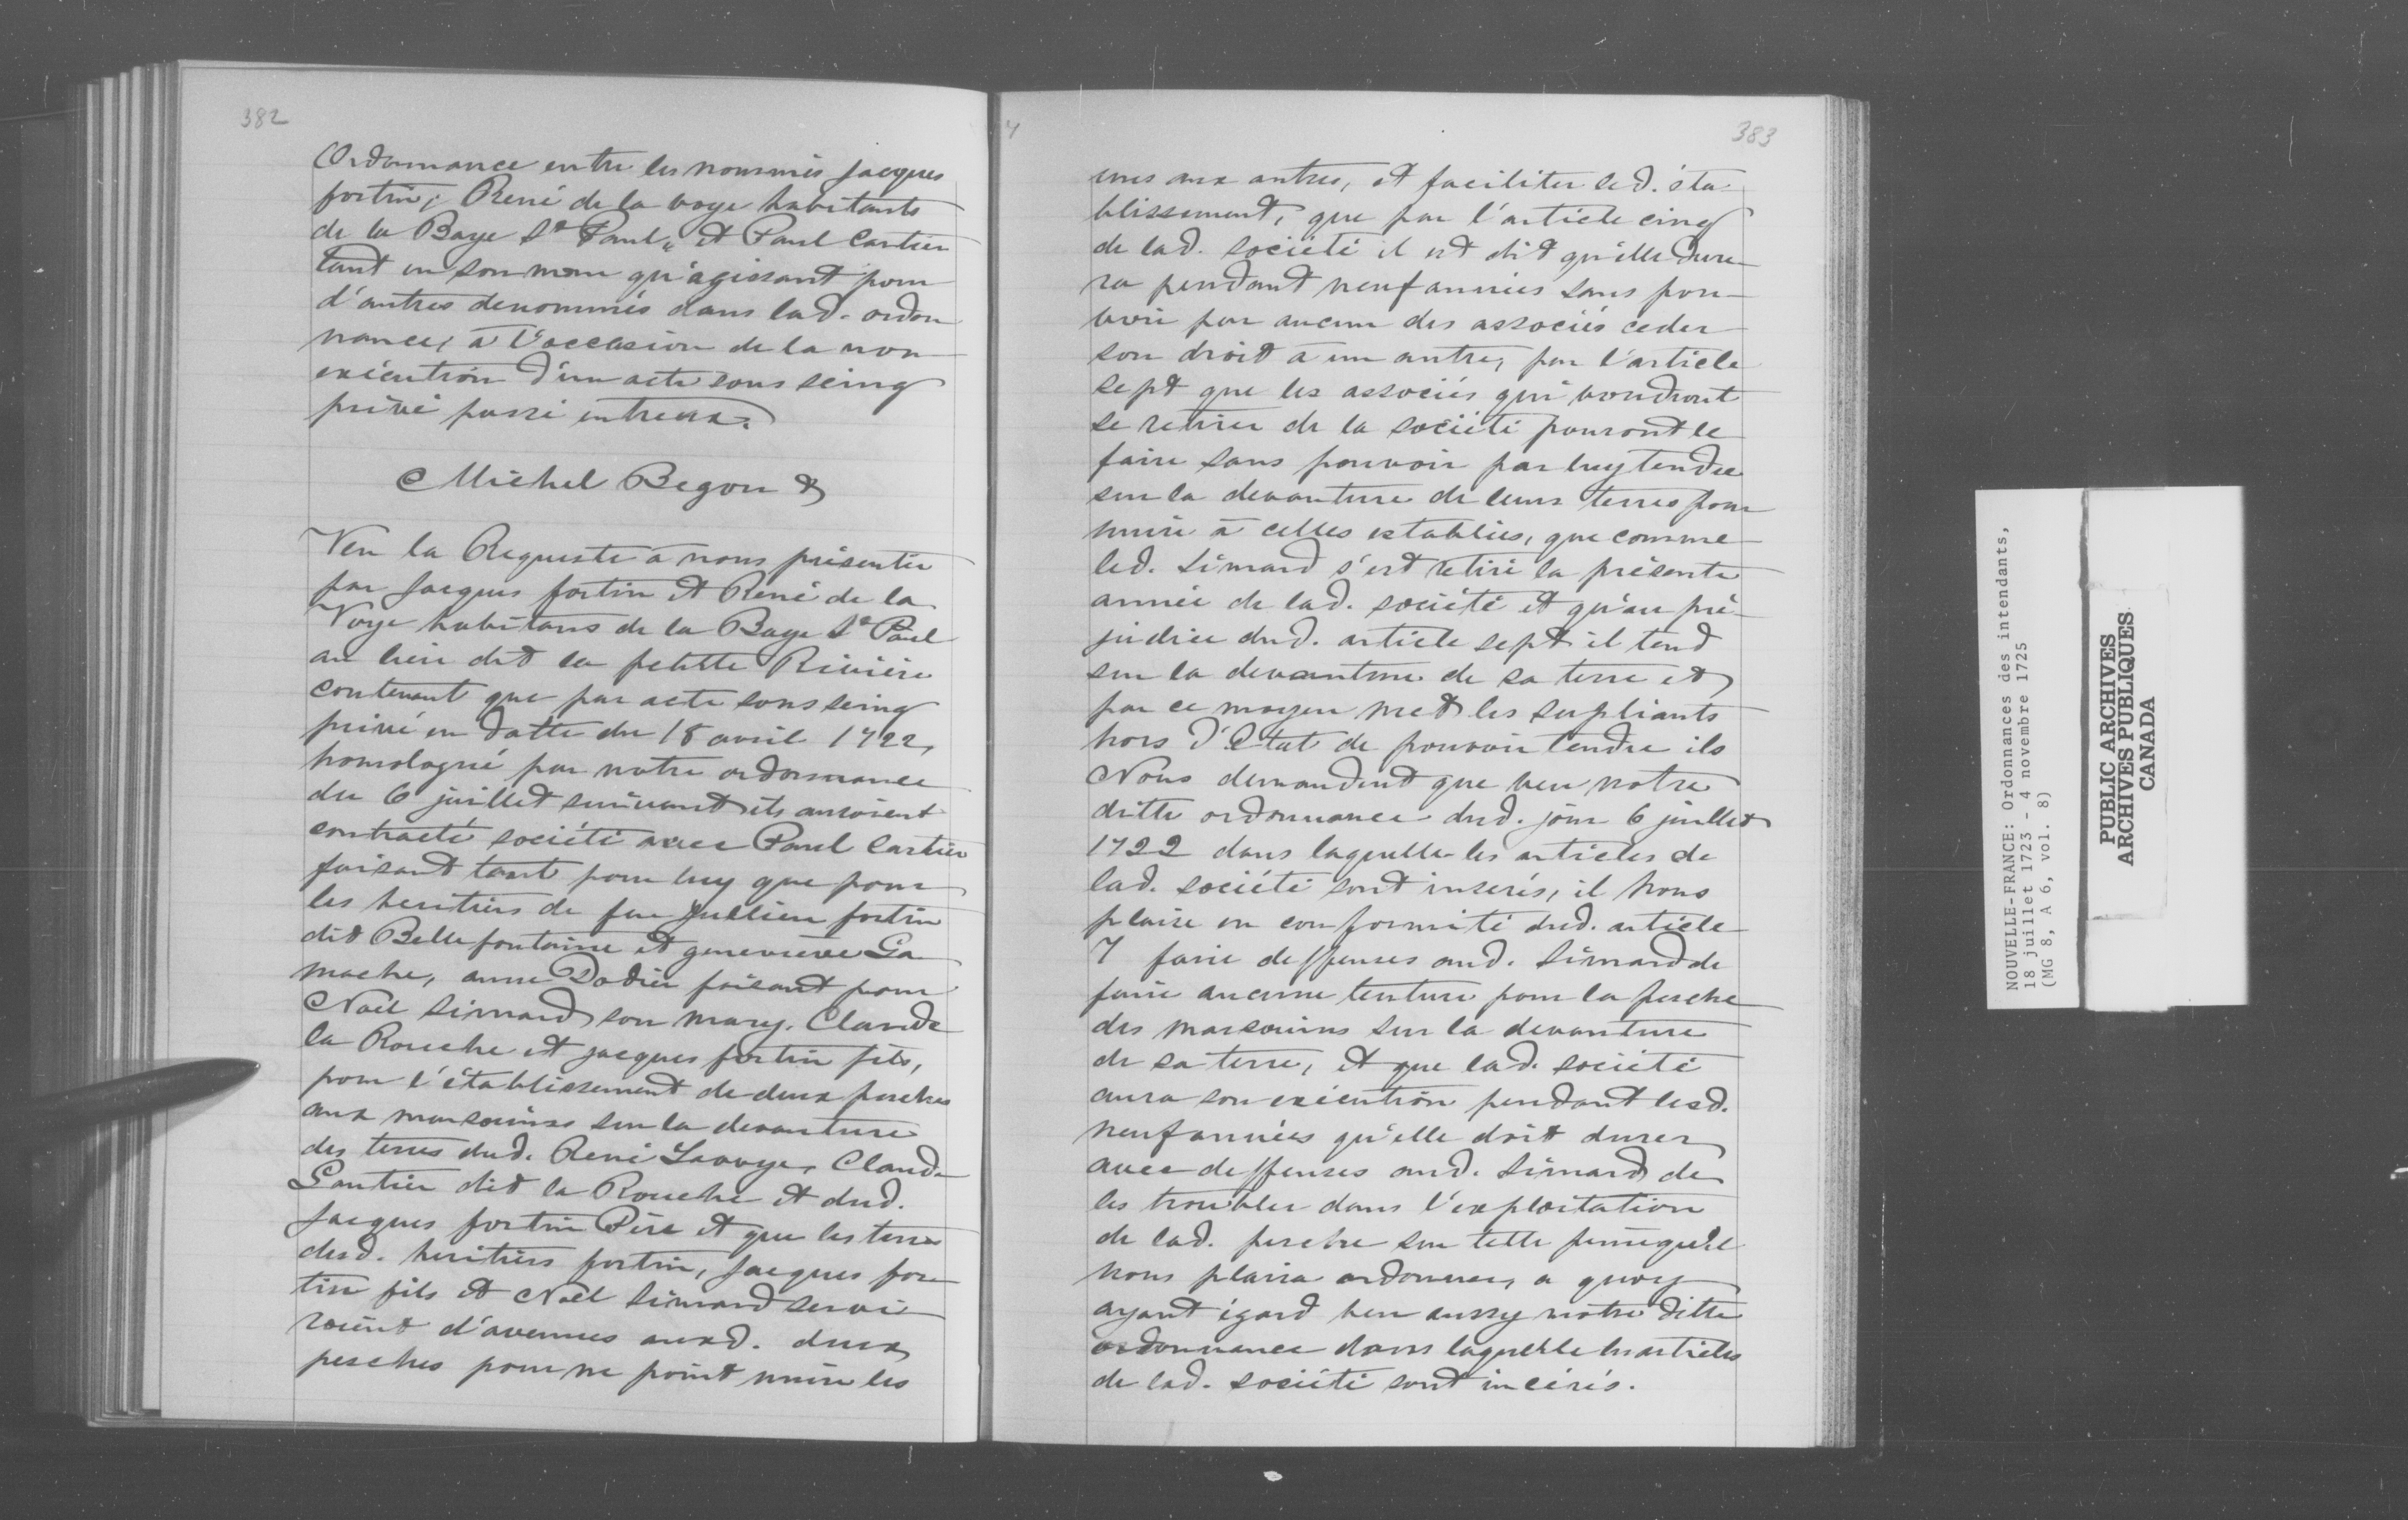 382
Ordonnance entre les nommés Jacques
fortin, René de la voye habitants
de la Baye St Paul, et Paul Cartier
tant en son nom qu'agissant pour
d'autres denommés dans lad. ordon
nance, à l'occasion de la non
exécution d'un acte sous seing
privé passé entreux.
Michel Begon &
Veu la Requeste à nous présentée
par Jacques fortin et René de la
Voye habitans de la Baye St Paul
au lieu dit la petitte Rivière
contenant que par acte sous seing
privé en datte du 18 avril 1722,
homologué par notre ordonnance
du 6 juillet suivant ils auroient
contracté société avec Paul Cartier
faisant tant pour luy que pour
les heritiers de feu Jullien fortin
dit Bellefontaine et genevieve Ga
mache, anne Dodier faisant pour
Noël Simard son mary. Claude
la Rouche et jacques fortin fils,
pour l'établissement de deux pesches
aux marsouins sur la devanture
des terres dud. René Lavoye, Claude
Gautier dit la Rouche et dud.
Jacques fortin Père et que les terres
desd. heritiers fortin, Jacques for
tin fils et Noël Simard servi
roient d'avenues auxd. deux
pesches pour ne point nuire les
4
383
unes aux autres, et faciliter led. éta
blissement, que par l'article cinq
de lad. société il est dit qu'elle dure
ra pendant neuf années sans pou-
voir par aucun des associés ceder
son droit à un autre, par l'article
sept que les associés qui voudront
se retirer de la société pouront le
faire sans pouvoir par luy tendre
sur la devanture de leurs terres pour
nuire à celles establies, que comme
led. Simard s'est retiré la présente
année de lad. société et qu'au pré-
judice dud. article sept il tend
sur la devanture de sa terre et
par ce moyen met les supliants
hors d'Etat de pouvoir tendre ils
Nous demandent que veu notre
ditte ordonnance dud. jour 6 juillet
1722 dans laquelle les articles de
lad. société sont inserés, il nous
plaise en conformité dud. article
7 faire deffenses aud. Simard de
faire aucune tenture pour la pesche
des marsouins sur la devanture
de sa terre, et que lad. société
aura son exécution pendant lesd.
neuf années qu'elle doit durer
avec deffenses aud. Simard de
les troubler dans l'exploitation
de lad. pesche sur telle peine qu'il
nous plaira ordonner, a quoy
ayant égard veu aussy notre ditte
ordonnance dans laquelle les articles
de lad. société sont incérés.
NOUVELLE-FRANCE: Ordonnances des intendants,
18 juillet 1723 - 4 novembre 1725
(MG 8, A 6, vol. 8)
PUBLIC ARCHIVES
ARCHIVES PUBLIQUES
CANADA